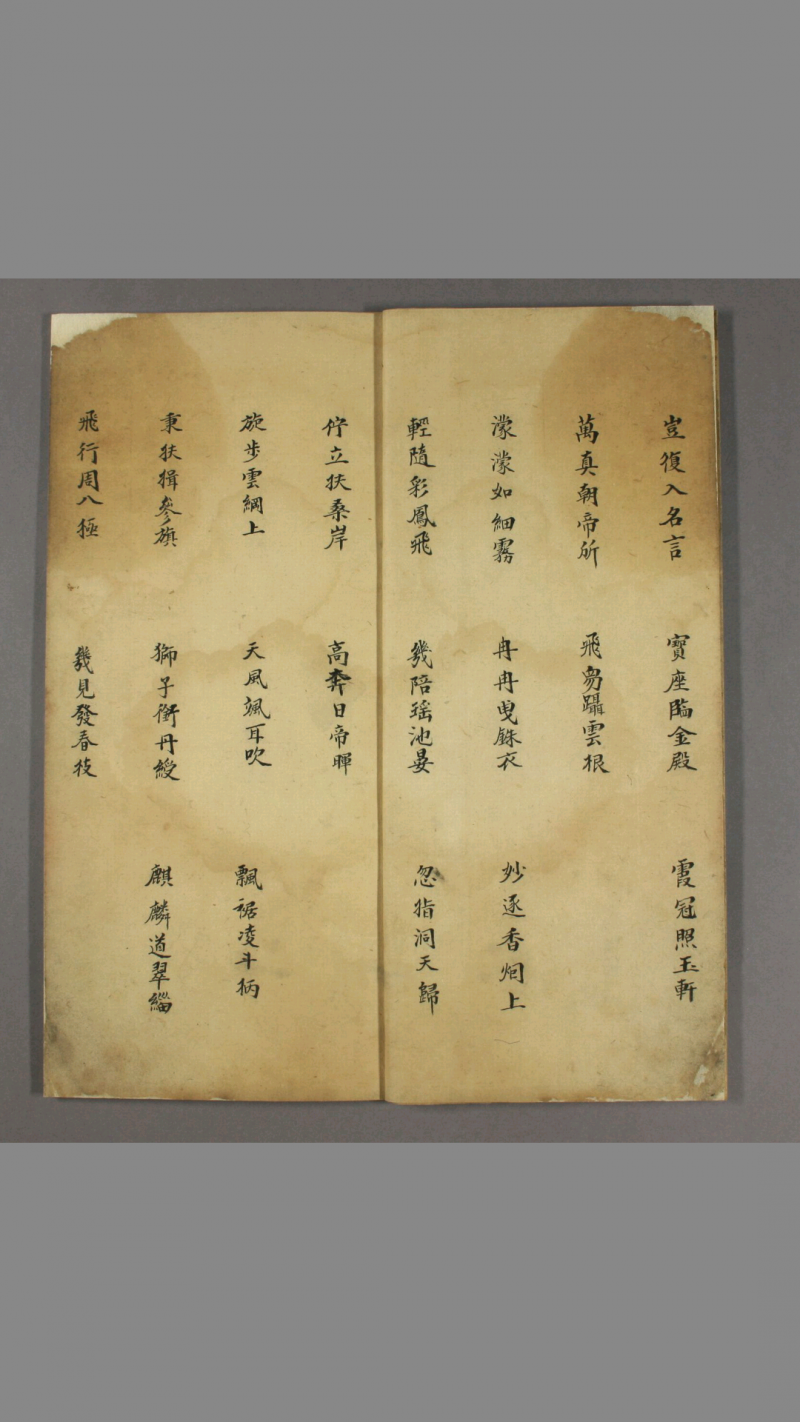 豈復入名言 寶座臨金殿 霞冠照玉軒
萬真朝帝所 飛舄躡雲根
濛濛如細霧 冉冉曳銖衣 妙逐香烟上
輕隨彩鳳飛 幾陪瑶池晏 忽指洞天歸
佇立扶桑岸 高奔日帝暉
旋步雲綱上 天風颯耳吹 飄裾凌斗柄
秉扶揖參旗 獅子銜丹綬 麒麟道翠緇
飛行周八極 幾見發春枝